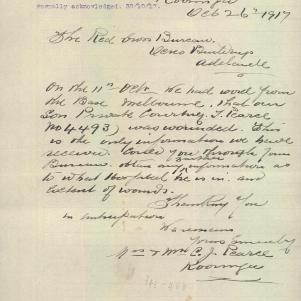 Kooringa
Formally acknowledged. 30/10/17.
Oct 26th 1917
The Red Cross Bureau.
Verco Buildings
Adelaide
On the 11th Oct. we had word from
the Base Melbourne, that our
Son Private Courtney. J. Pearce
No 4493) was wounded. This
is the only information we have
received. Could you through your
Bureau, obtain any further information as
to what Hospital he is in. and
extent of wounds.
Thanking You
in anticipation
We remain
Yours Sincerely
Mr & Mrs C. J. Pearce
Kooringa